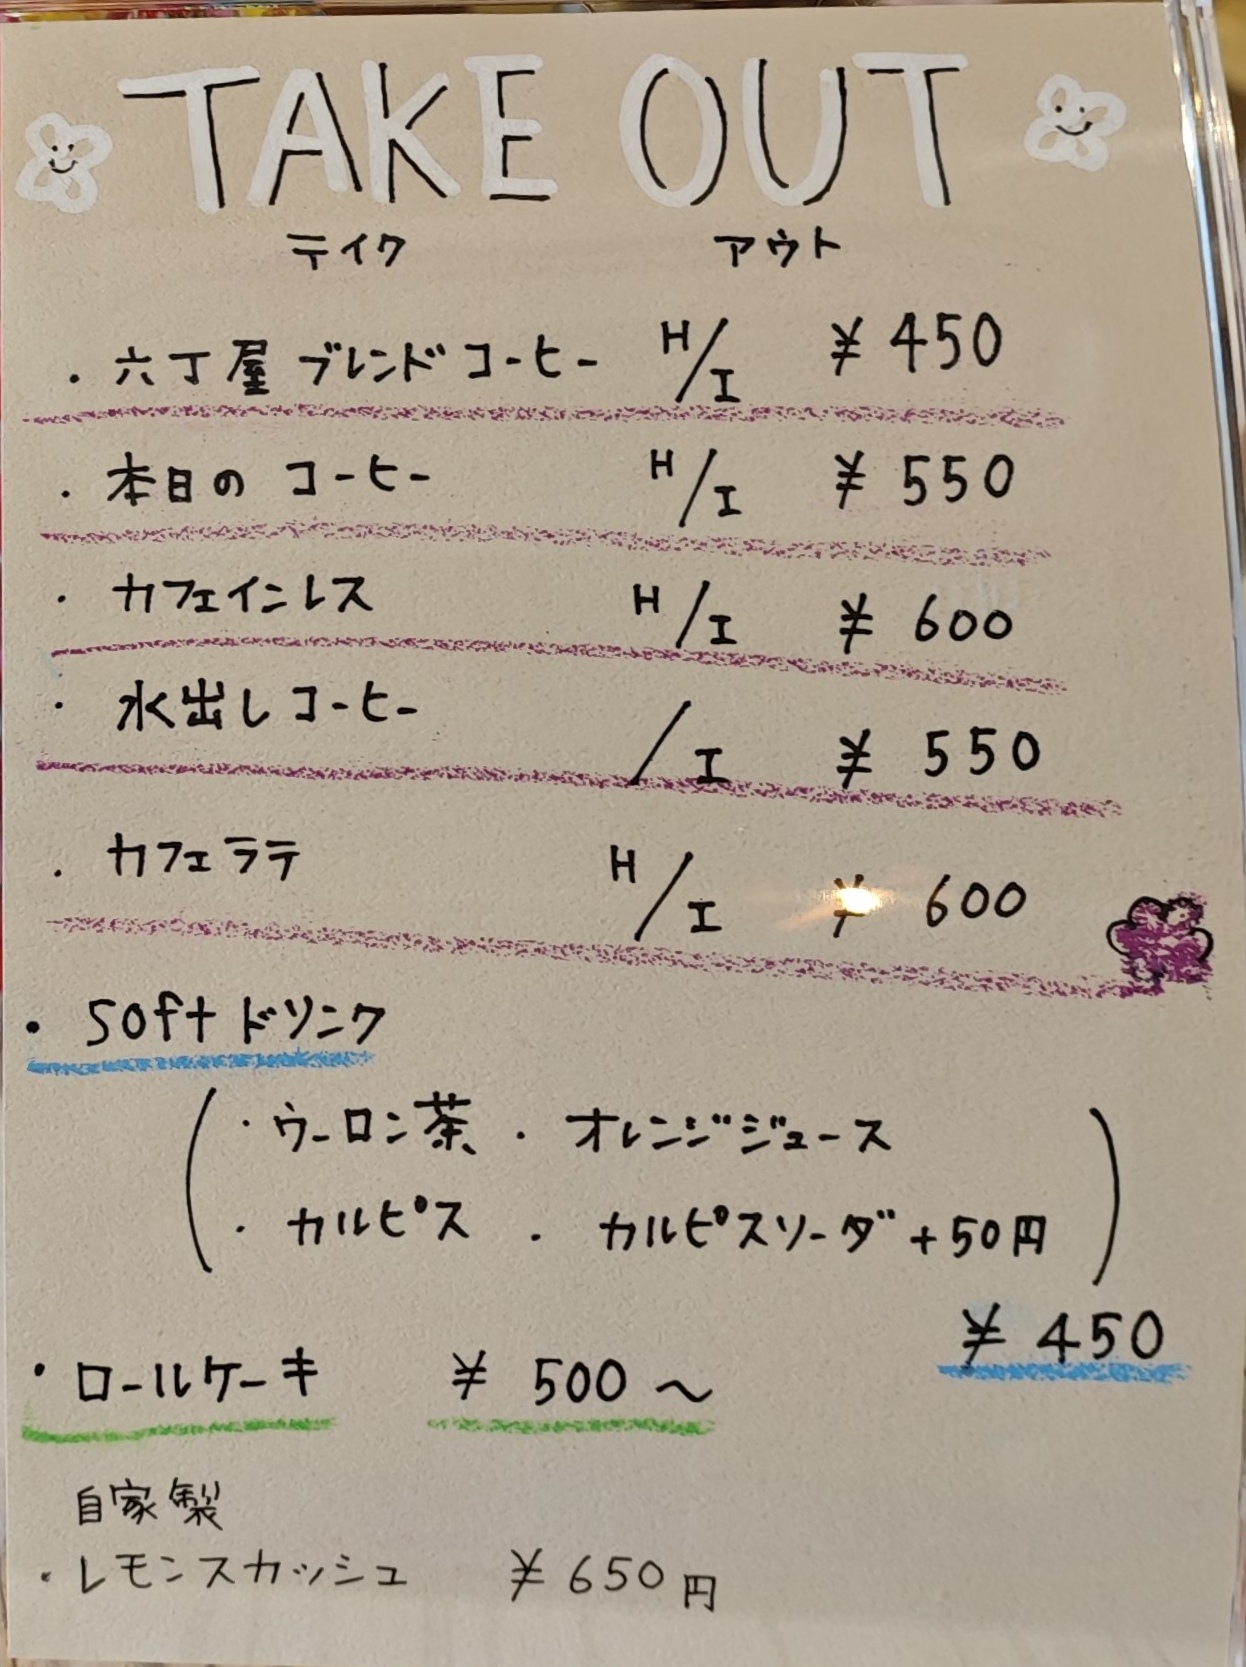 TAKE OUT
テイク アウト
・六丁屋 ブレンドコーヒー H/I ¥450
・本日の コーヒー H/I ¥550
・カフェインレス H/I ¥600
・水出しコーヒー /I ¥550
・カフェラテ H/I ¥600
・Softドリンク
(・ウーロン茶 ・オレンジジュース
・カルピス ・カルピスソーダ+50円)
¥450
・ロールケーキ ¥500〜
自家製
・レモンスカッシュ ¥650円